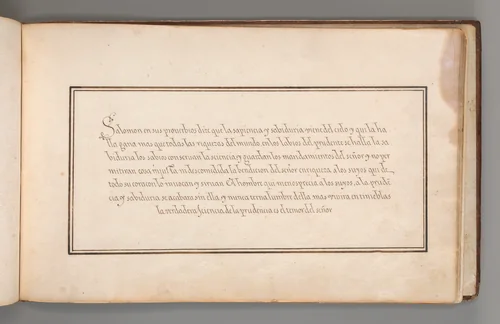 Salomon en sus prouerbios dize que la sapiencia y sabiduria viene del cielo y que la ha
lla gana mas que todas las riquezas del mundo. en los labios del prudente se halla la sa
biduria los sabios conseruan la sciencia y guardan los mandamientos del señor y no per
miten cosa injusta ni descomedida la bendicion del señor enriqueze a los suyos que de
todo su coraçon lo inuocan y siruen El hombre que menosprecia a los suyos, a la prudẽ
cia y sabiduria se acabara sin ella y nunca terna lumbre della mas viuira en tinieblas
la verdadera sciencia de la prudencia es el temor del señor